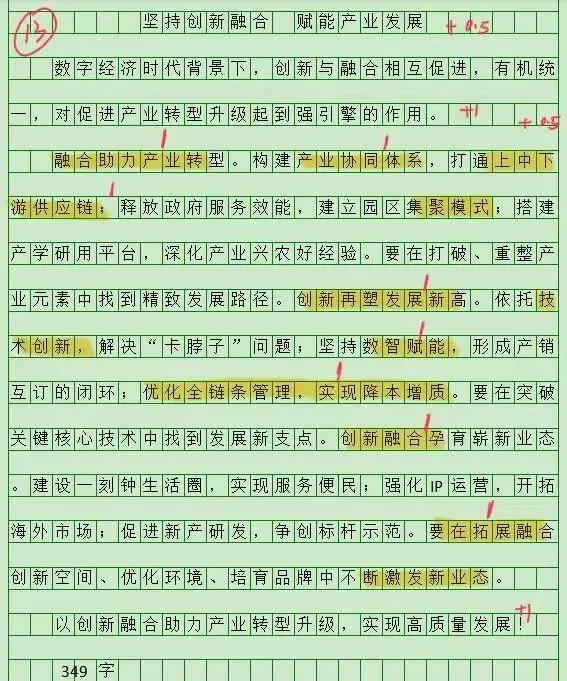 13
坚持创新融合 赋能产业发展 +0.5
数字经济时代背景下，创新与融合相互促进，有机统
一，对促进产业转型升级起到强引擎的作用。 +1 +0.5
融合助力产业转型。构建产业协同体系，打通上中下
游供应链；释放政府服务效能，建立园区集聚模式；搭建
产学研用平台，深化产业兴农好经验。要在打破、重整产
业元素中找到精致发展路径。创新再塑发展新高。依托技
术创新，解决“卡脖子”问题；坚持数智赋能，形成产销
互订的闭环；优化全链条管理，实现降本增质。要在突破
关键核心技术中找到发展新支点。创新融合孕育崭新业态
。建设一刻钟生活圈，实现服务便民；强化IP运营，开拓
海外市场；促进新产研发，争创标杆示范。要在拓展融合
创新空间、优化环境、培育品牌中不断激发新业态。
以创新融合助力产业转型升级，实现高质量发展！ +1
349 字